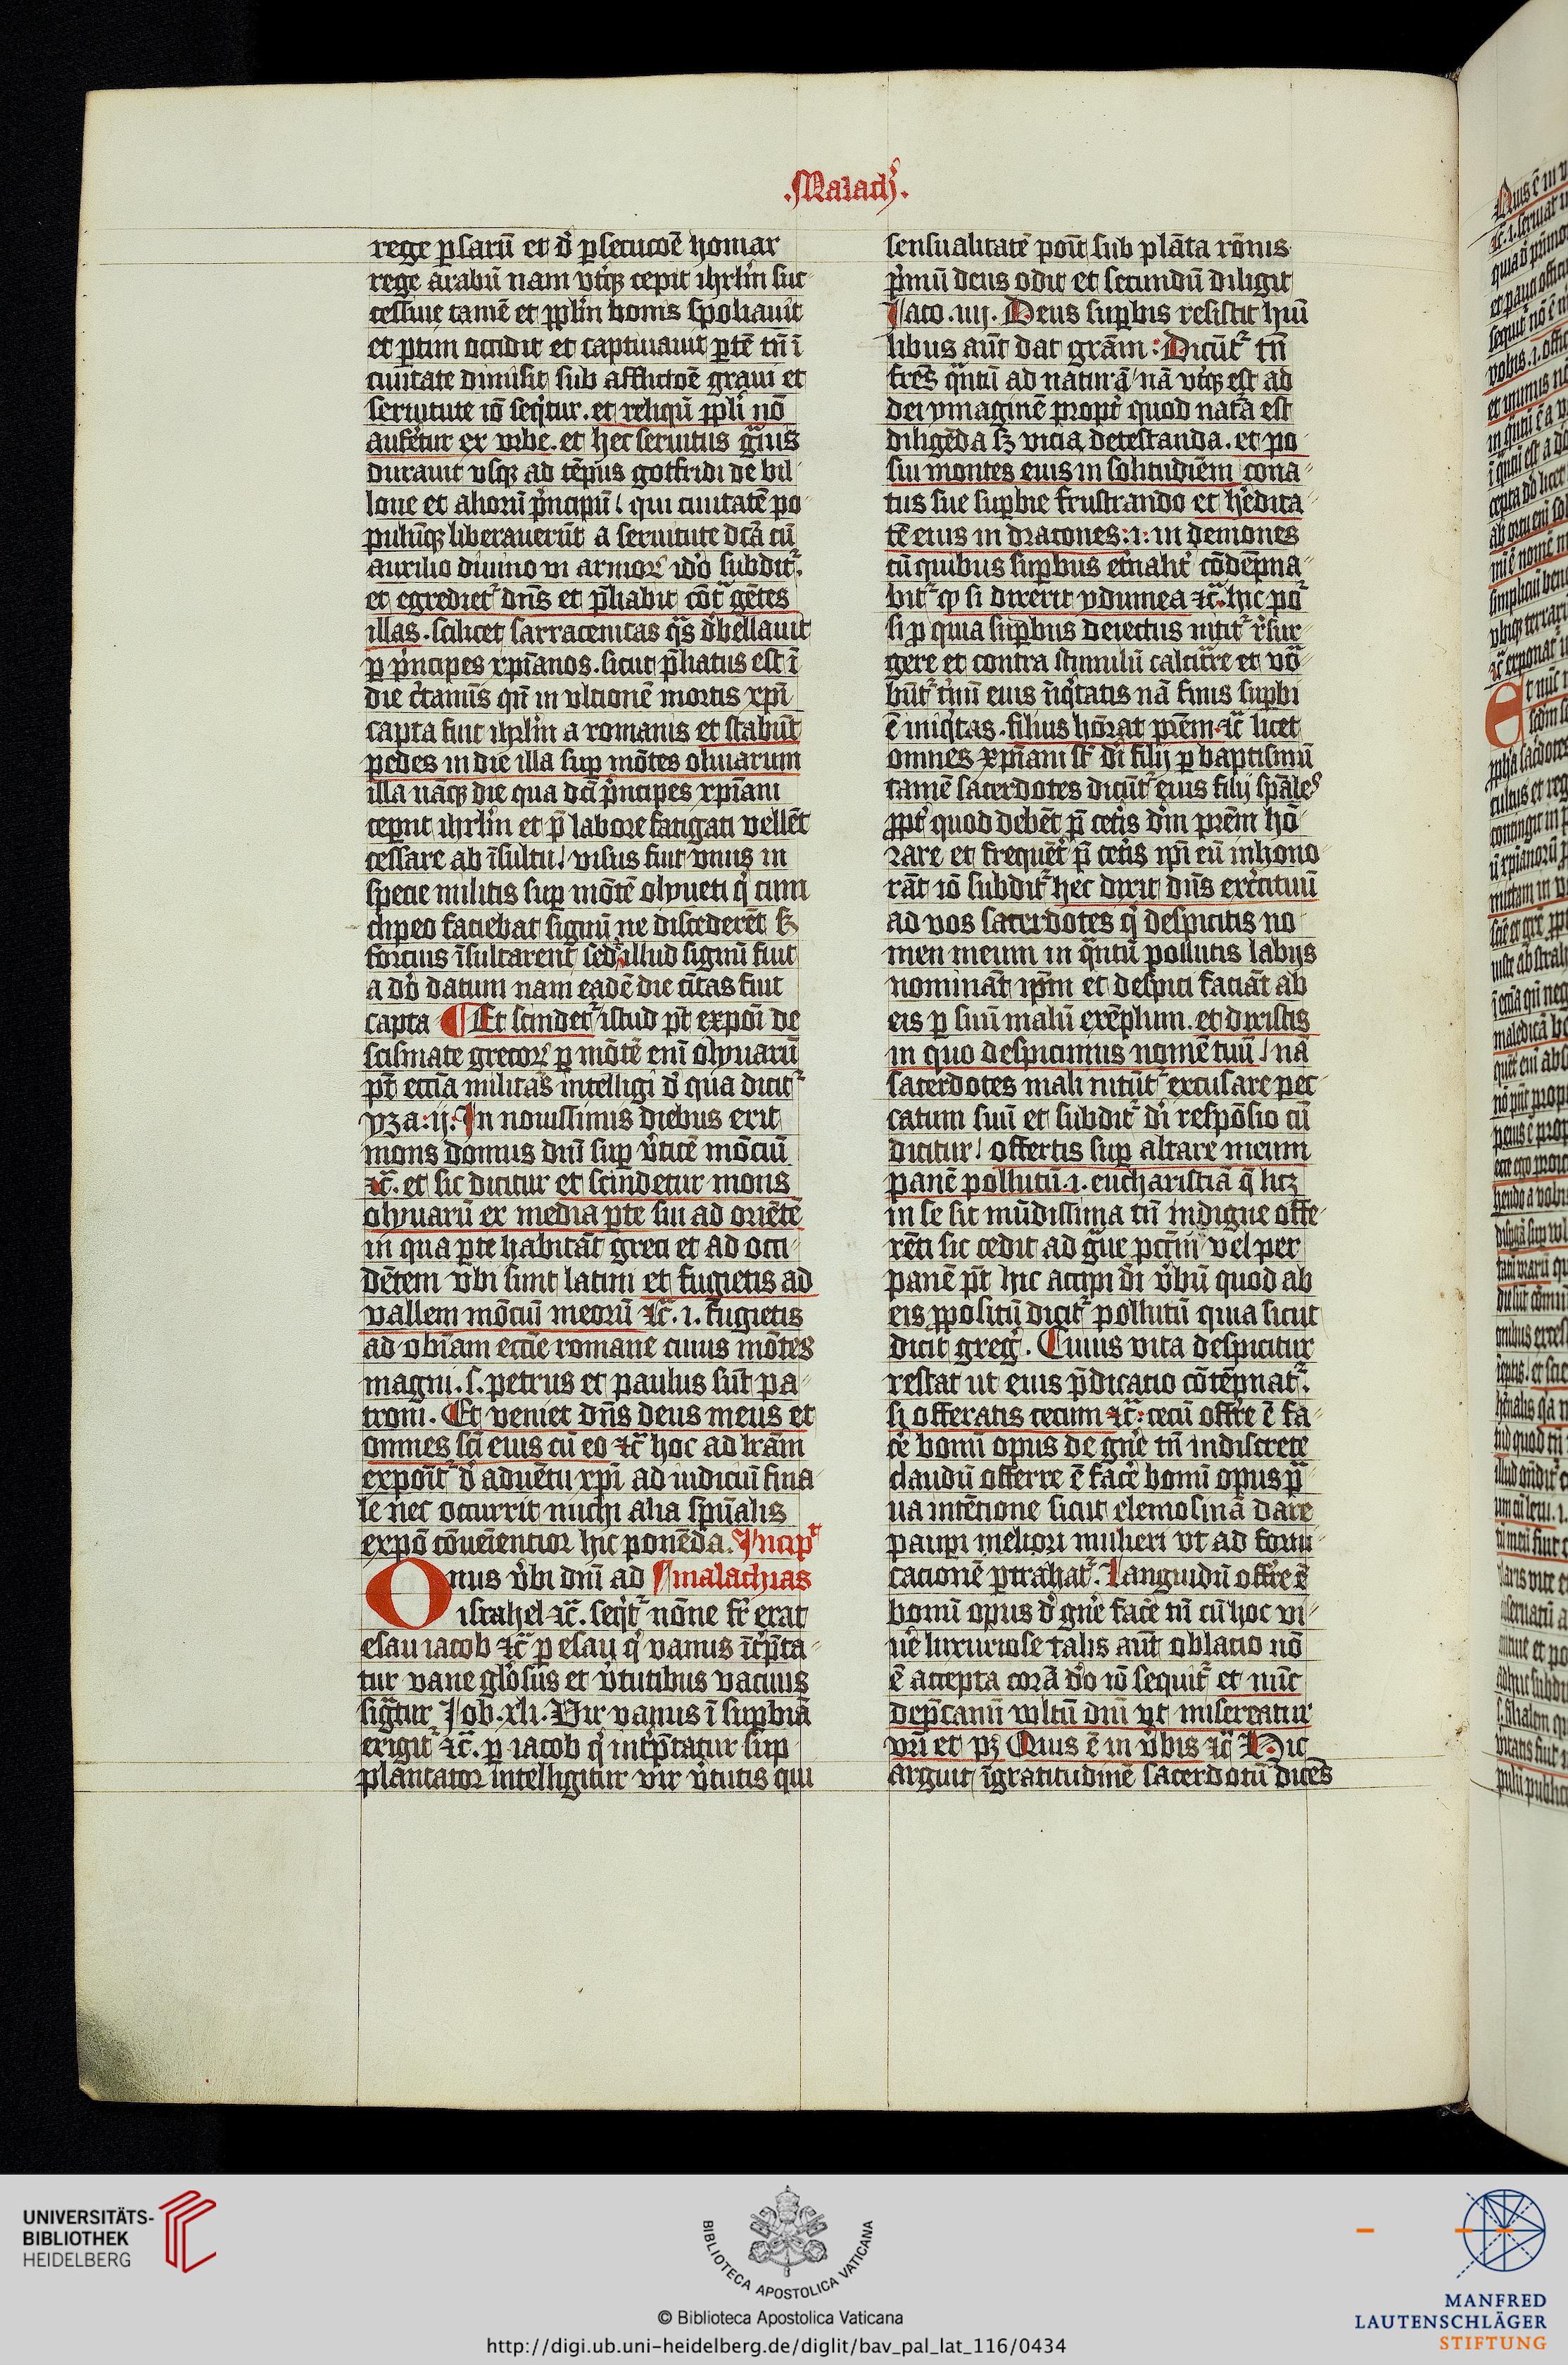 .Malach̄.
rege ꝑsarū et d̓ ꝑsecutoē homar
rege arabū nam vtq̓ꝫ cepit ihrl̄m suc-
cessiue tamē et ꝓpl̄m bonis spoliauit
et ꝑtim occidit et captiuauit ꝑtē tn̄ ī
ciuitate dimisit sub afflictoē graui et
seruitute iō seq̓tur. et reliqū ꝓpl̓i nō
aufet̓ur ex vrbe. et hec seruitus grᷓuis
durauit vsqꝫ ad tēpus gotfridi de bil
lone et alioru̅ pͥncipu̅ / qui ciuitatē po-
pulu̅qꝫ liberaueru̅t a seruitute dc̄a cū
auxilio diuino vi armoꝝ ido̓ subdit᷑.
et egrediet᷑ dn̄s et p̄liabit cōtᷓ gētes
illas. scilicet sarracenitas qᷓs d̓bellauit
ꝑ pͥncipes xp̄ianos. sicut p̄liatus est ī
die c̓taminis qn̄ in vltionē mortis xp̄i
capta fuit ihrl̄m a romanis et stabūt
pedes in die illa suꝑ mōtes oliuarum
illa nāqꝫ die qua dc̄i pͥncipes xp̄iani
ceperut ihrl̄m et p̄ labore fatigati vellēt
cessare ab īsultu / visus fuit vnus in
specie militis suꝑ mōtē olyueti q̓ cum
clipeo faciebat signū ne discederēt sꝫ
forcius īsultarent sed᷑ illud signū fuit
a do̓ datum nam eadē die ciuitas fuit
capta ¶ Et scindet᷑ istud pt̄ exponi de
scismate grecoꝝ ꝑ mōtē eni̅ olyuarū
pt̄ eccīa militās intelligi d̓ qua dicit᷑
yza: ij: In nouissimis diebus erit
mons domus dni̅ suꝑ v̓ticē mōciū
⁊c̄. et sic dicitur et scindetur mons
olyuarū ex media ꝑte sui ad oriētē
in qua ꝑte habitāt greci et ad occi-
dētem vbi sunt latini et fugietis ad
vallem mōciū meoru̅ ⁊c̄. i. fugietis
ad obīam eccīe romane cuius mōtes
magni. s. petrus et paulus sūt pa-
troni. Et veniet dn̄s deus meus et
omnes sc̄i eius cū eo ⁊c̄ hoc ad lr̄am
exponīt᷑ d̓ aduētu xp̄i ad iudiciū fina-
le nec occurrit michi alia spūalis
expō cōueniencior hic ponēda. Incipt
Onus v̓bi dni̅ ad malachias
israhel ⁊c̄. seq̓t᷑ nōne fr̄ erat
esau iacob ⁊c̄ ꝑ esau q̓ vanus īt̓p̄ta-
tur vane glo̓sus et v̓tutibus vacuus
signᷓtur Iob. xli. Vir vanus ī suꝑbiā
erigit᷑ ⁊c̄. ꝑ iacob q̓ int̓p̄tatur sup-
plantator intelligitur vir v̓tutis qui
sensualitatē ponit sub plāta rōnis
pͥmū deus odit et secundū diligit
Jaco. iiij. Deus suꝑbis resistit humi
libus aūt dat grām: Dicūt᷑ tn̄
frēs qᷓntū ad naturā / nā vtq̓ꝫ est ad
dei ymaginē propt̓ quod nat̓a est
diligēda sꝫ vicia detestanda. et po-
sui montes eius in solitudinēm cona-
tus sue suꝑbie frustrando et he̓dita-
tē eius in dracones: i: in demones
cū quibus suꝑbus et̓nalit̓ cōdēpna-
bit᷑ qꝫ si dixerit ydumea ⁊c̄. hic po᷑
si ꝑ quia suꝑbus deiectus nitit᷑ r̓sur-
gere et contra stimulū calcitᷓre et vo-
būt᷑ t̓mi̅ eius iniq̓tatis nā finis suꝑbi
ē iniq̓tas. filius honorat prēm ⁊c̄ licet
omnes xp̄iani st̄ di̓ filij ꝑ baptismū
tamē sacerdotes dicūt᷑ eius filij spāles
ꝓpt̓ quod debēt p̄ cet̓is dn̄m prēm ho-
rare et frequēt̓ p̄ cet̓is ip̄i eū inhono-
rāt iō subdit᷑ hec dixit dn̄s exc̓ituū
ad vos sacerdotes q̓ despicitis no-
men meum in qᷓntū pollutis labijs
nomināt ip̄m et despici faciāt ab
eis ꝑ suū malū exēplum. et dixistis
in quo despicimus nomē tuū / nā
sacerdotes mali nitūt᷑ excusare pec-
catum suū et subdit᷑ di̓ respōsio cū
dicitur / offertis suꝑ altare meum
panē pollutū. i. eucharistiā q̄ licꝫ
in se sit mūdissima tn̄ indigne offe-
rēti sic cedit ad gᷓue pctm̄ vel per
panē pt̄ hic accipi di̓ v̓bū quod ab
eis ꝓpositū dicit᷑ pollutū quia sicut
dicit greg̓. Cuius vita despicitur
restat ut eius p̄dicatio cōtēpnat᷑.
si offeratis cecum ⁊c̄: cecū offr̓e ē fa-
c̓e bonū opus de gn̓e tn̄ indiscrete
claudū offerre ē fac̓e bonū opus pᷓ-
ua intētione sicut elemosinā dare
pauꝑi meliori mulieri vt ad forni-
cacionē ꝑtrahat᷑. Languidū offr̓e ē
bonū opus d̓ gn̓e fac̓e tn̄ cū hoc vi-
ue̓ luxuriose talis aūt oblacio nō
ē accepta corā do̓ iō sequit᷑ et nūc
dep̄camī vultū dni̅ vt misereatur
vr̄i et pꝫ Quis ē in v̓bis ⁊c̄ Hic
arguit īgratitudinē sacerdotū dicēs
UNIVERSITÄTS-
BIBLIOTHEK
HEIDELBERG
BIBLIOTECA APOSTOLICA VATICANA
© Biblioteca Apostolica Vaticana
http://digi.ub.uni-heidelberg.de/diglit/bav_pal_lat_116/0434
MANFRED
LAUTENSCHLÄGER
STIFTUNG